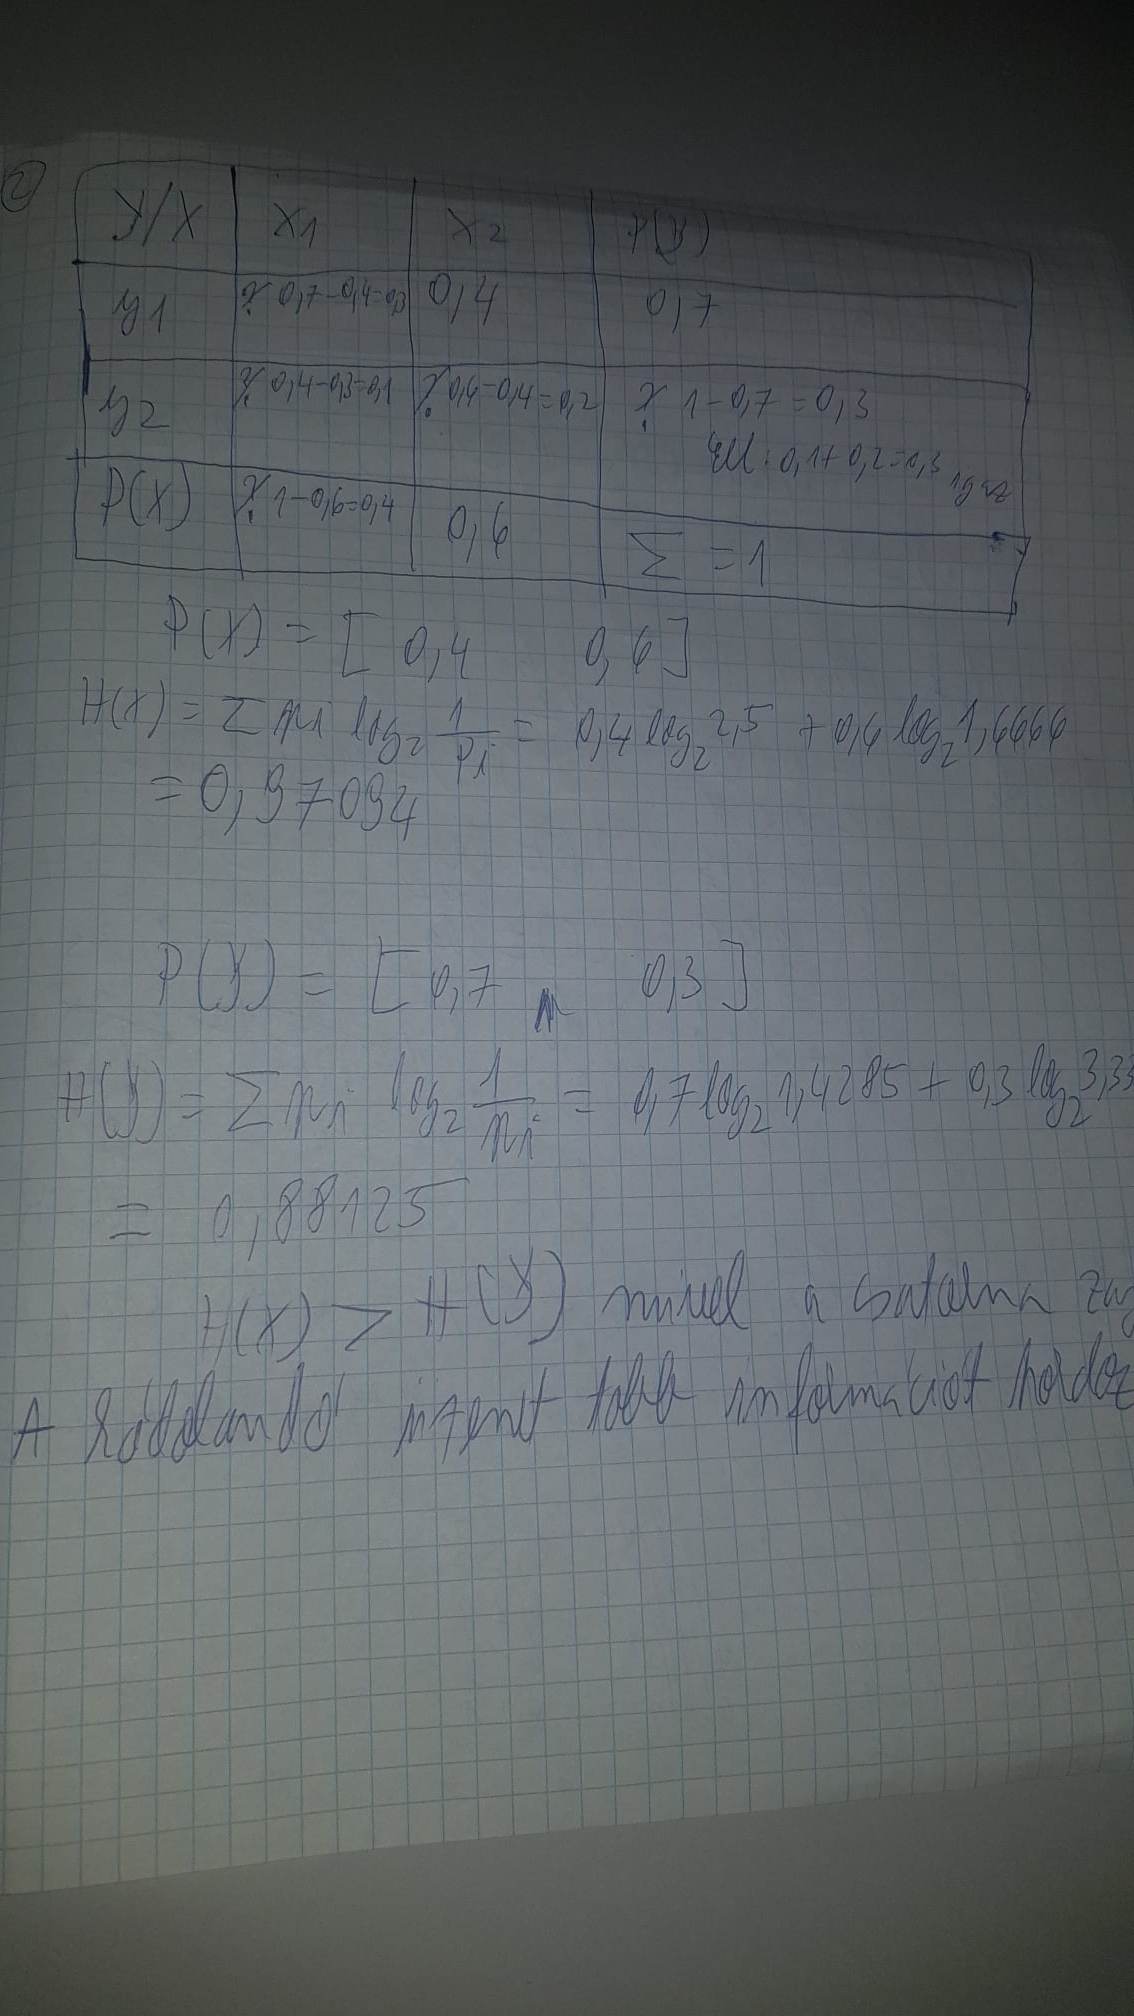 2
Y/X X1 X2 P(Y)
y1 ? 0,7-0,4=0,3 0,4 0,7
y2 ? 0,4-0,3=0,1 ? 0,6-0,4=0,2 ? 1-0,7=0,3
Ell: 0,1+0,2=0,3 igaz
P(X) ? 1-0,6=0,4 0,6 Σ = 1
P(X) = [ 0,4 0,6 ]
H(X) = Σ pi log2 1/pi = 0,4 log2 2,5 + 0,6 log2 1,6666
= 0,97094
P(Y) = [ 0,7 0,3 ]
H(Y) = Σ pi log2 1/pi = 0,7 log2 1,4285 + 0,3 log2 3,33
= 0,88125
H(X) > H(Y) mivel a csatorna zaj
A kódolandó üzenet több információt hordoz